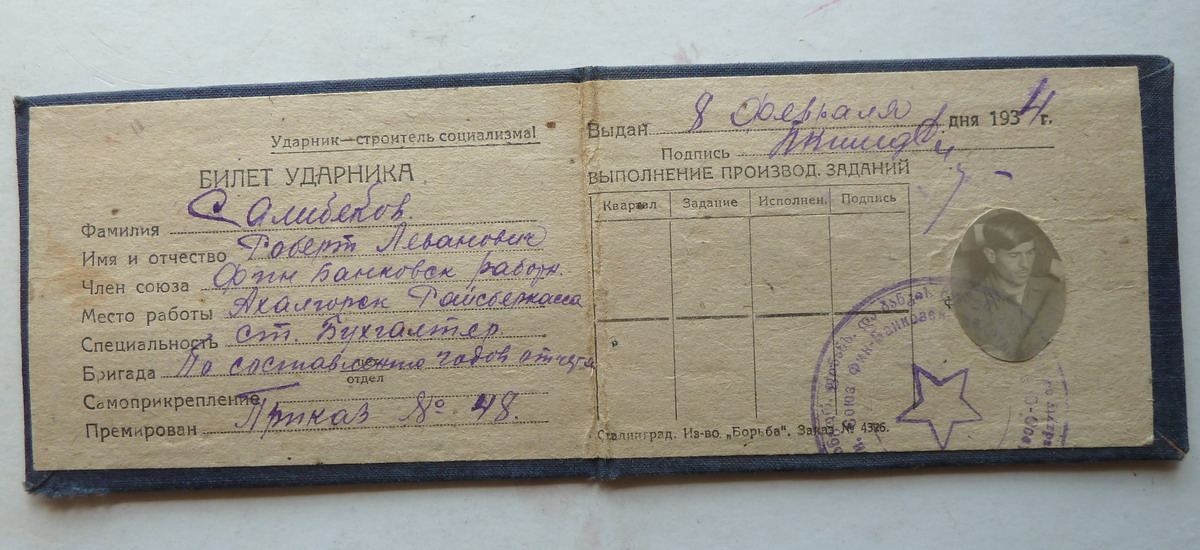 Ударник—строитель социализма!
БИЛЕТ УДАРНИКА
Фамилия Салибеков.
Имя и отчество Роберт Леванович
Член союза Фин Банковск работн.
Место работы Ахалгорск Райсберкасса
Специальность ст. Бухгалтер.
Бригада По составлению годов отчета
отдел
Самоприкрепление
Премирован Приказ № 48.
Выдан 8 Февраля дня 1934 г.
Подпись
ВЫПОЛНЕНИЕ ПРОИЗВОД. ЗАДАНИЙ
Квартал Задание Исполнен. Подпись
Сталинград. Из-во „Борьба". Заказ № 4326.